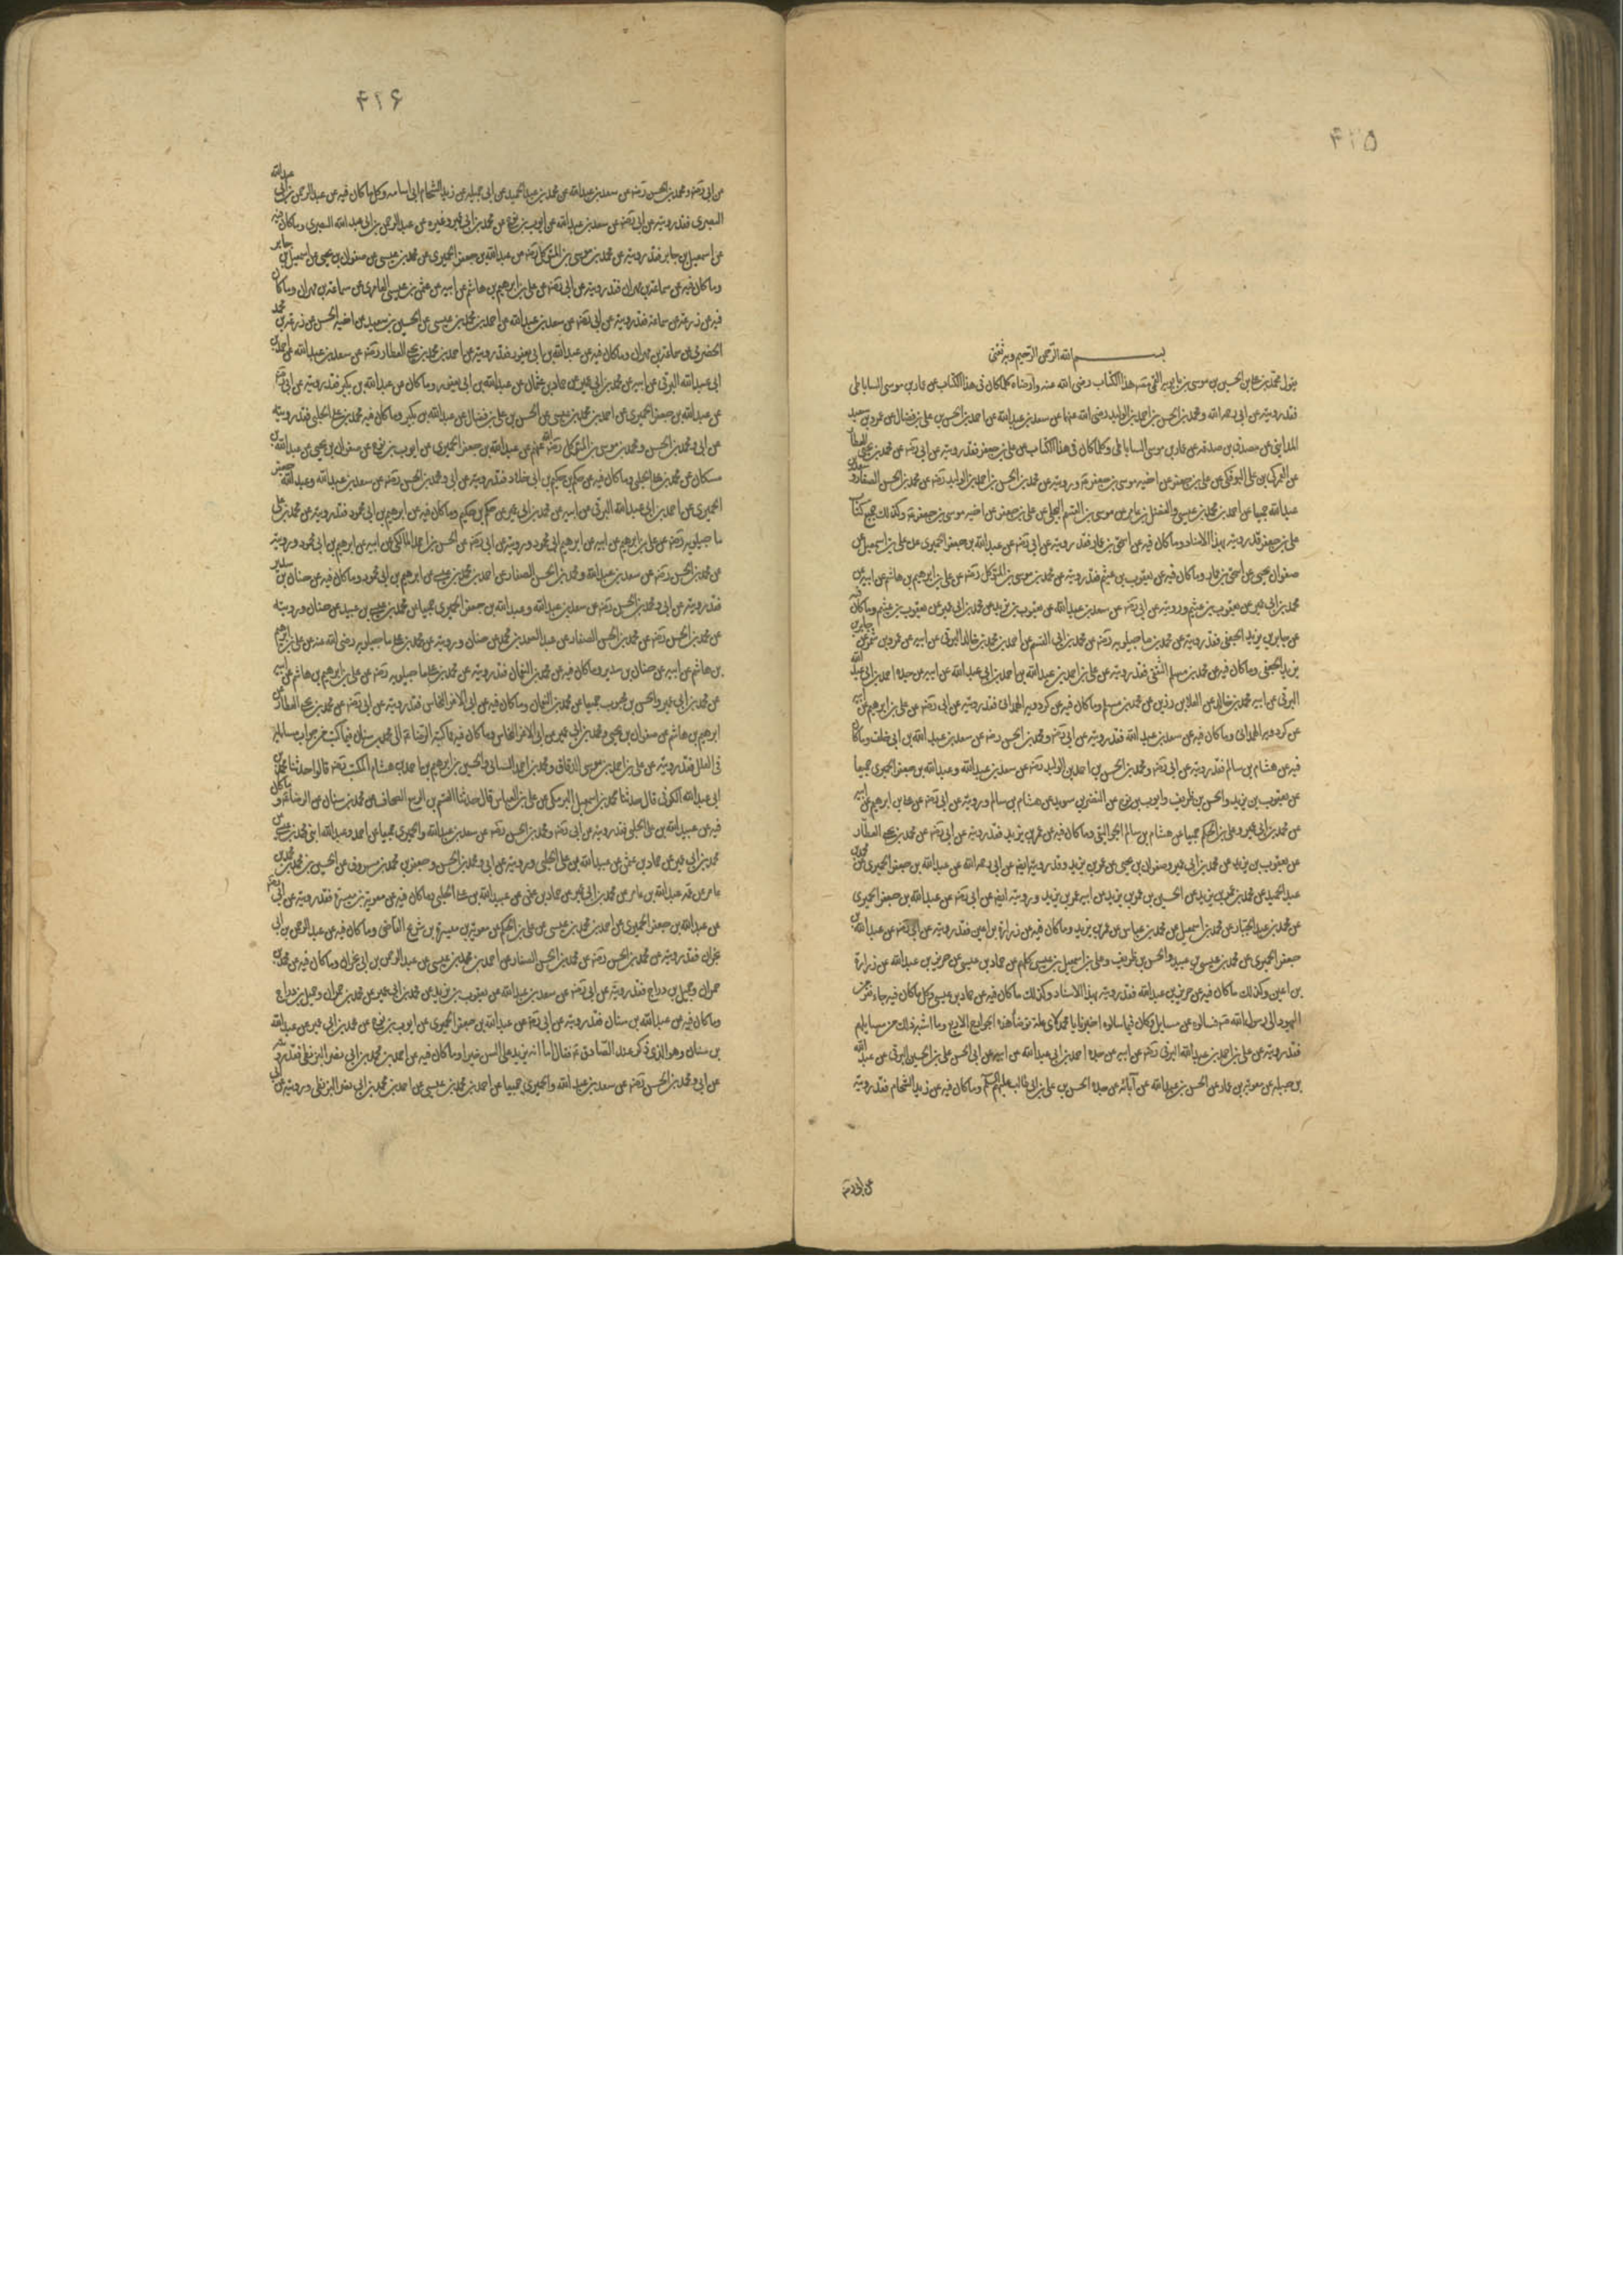 ۴۱۵
بسم الله الرحمن الرحيم وبه ثقتي
يقول محمد بن علي بن الحسين بن موسى بن بابويه القمي مصنف هذا الكتاب رضى الله عنه وارضاه كلما كان في هذا الكتاب عن عمار بن موسى الساباطي
فقد رويته عن ابي رحمه الله ومحمد بن الحسن بن احمد بن الوليد رضى الله عنهما عن سعد بن عبدالله عن احمد بن الحسن بن علي بن فضال عن عمرو بن سعيد
المدايني عن مصدق بن صدقه عن عمار بن موسى الساباطي وكلما كان في هذا الكتاب عن علي بن جعفر فقد رويته عن ابي رضه عن محمد بن يحيى العطار
عن العمركي بن علي البوفكي عن علي بن جعفر عن اخيه موسى بن جعفر ع ورويته عن محمد بن الحسن بن احمد بن الوليد رضه عن محمد بن الحسن الصفار وسعد بن
عبدالله جميعا عن احمد بن محمد بن عيسى والفضل بن عامر عن موسى بن القسم البجلي عن علي بن جعفر عن اخيه موسى بن جعفر ع وكذلك جميع كتاب
علي بن جعفر فقد رويته بهذا الاسناد وما كان فيه عن اسحق بن عمار فقد رويته عن ابي رضه عن عبدالله بن جعفر الحميري عن علي بن اسمعيل عن
صفوان بن يحيى عن اسحق بن عمار وما كان فيه عن يعقوب بن عيثم فقد رويته عن محمد بن موسى بن المتوكل رضه عن علي بن ابرهيم بن هاشم عن ابيه عن
محمد بن ابي عمير عن يعقوب بن عيثم ورويته عن ابي رضه عن سعد بن عبدالله عن يعقوب بن يزيد عن محمد بن ابي عمير عن يعقوب بن عيثم وما كان فيه
عن جابر بن يزيد الجعفي فقد رويته عن محمد بن علي ماجيلويه رضه عن محمد بن ابي القسم عن احمد بن محمد بن خالد البرقي عن ابيه عن عمرو بن شمر عن جابر بن
يزيد الجعفي وما كان فيه عن محمد بن مسلم الثقفي فقد رويته عن علي بن احمد بن عبدالله بن احمد بن ابي عبدالله عن ابيه عن جده احمد بن ابي عبد الله
البرقي عن ابيه محمد بن خالد عن العلا بن رزين عن محمد بن مسلم وما كان فيه عن كردويه الهمداني فقد رويته عن ابي رضه عن علي بن ابرهيم عن ابيه
عن كردويه الهمداني وما كان فيه عن سعد بن عبدالله فقد رويته عن ابي رضه ومحمد بن الحسن رضه عن سعد بن عبدالله بن ابي خلف وما كان
فيه عن هشام بن سالم فقد رويته عن ابي رضه ومحمد بن الحسن بن احمد بن الوليد رضه عن سعد بن عبدالله وعبدالله بن جعفر الحميري جميعا
عن يعقوب بن يزيد والحسن بن ظريف وايوب بن نوح عن النضر بن سويد عن هشام بن سالم ورويته عن ابي رضه عن علي بن ابرهيم عن ابيه
عن محمد بن ابي عمير وعلي بن الحكم جميعا عن هشام بن سالم الجواليقي وما كان فيه عن عمر بن يزيد فقد رويته عن ابي رضه عن محمد بن يحيى العطار
عن يعقوب بن يزيد عن محمد بن ابي عمير وصفوان بن يحيى عن عمر بن يزيد وقد رويته ايضا عن ابي رحمه الله عن عبدالله بن جعفر الحميري عن محمد بن
عبد الحميد عن محمد بن عمر بن يزيد عن الحسين بن عمر بن يزيد عن ابيه عمر بن يزيد ورويته ايضا عن ابي رضه عن عبدالله بن جعفر الحميري
عن محمد بن عبد الجبار عن محمد بن اسمعيل عن محمد بن عباس عن عمر بن يزيد وما كان فيه عن زرارة بن اعين فقد رويته عن ابي رضه عن عبدالله بن
جعفر الحميري عن محمد بن عيسى بن عبيد والحسن بن ظريف وعلي بن اسمعيل بن عيسى كلهم عن حماد بن عيسى عن حريز بن عبدالله عن زرارة
بن اعين وكذلك ما كان فيه عن حريز بن عبدالله فقد رويته بهذا الاسناد وكذلك ما كان فيه عن حماد بن عيسى وكل ما كان فيه جاء نفر من
اليهود الى رسول الله ص فسالوه عن مسايل وكان فيما سالوه اخبرنا يا محمد لاى علة توضأ هذه الجوارح الاربع وما اشبه ذلك من مسايلهم
فقد رويته عن علي بن احمد بن عبدالله البرقي رضه عن ابيه عن جده احمد بن ابي عبدالله عن ابيه عن ابي الحسن علي بن الحسين البرقي عن عبد الله
بن جبله عن معوية بن عمار عن الحسن بن عبدالله عن آبائه عن جده الحسن بن علي بن ابي طالب عليهم السلم وما كان فيه عن زيد الشحام فقد رويته
عن ابي رضه
۴۱۶
عن ابي رضه ومحمد بن الحسن رضه عن سعد بن عبدالله عن محمد بن عبد الحميد عن ابي جميله عن زيد الشحام ابي اسامه وكل ما كان فيه عن عبدالرحمن بن ابي عبدالله
البصري فقد رويته عن ابي رضه عن سعد بن عبدالله عن ايوب بن نوح عن محمد بن ابي عمير وغيره عن عبدالرحمن بن ابي عبدالله البصري وما كان فيه
عن اسمعيل بن جابر فقد رويته عن محمد بن موسى بن المتوكل رضه عن عبدالله بن جعفر الحميري عن محمد بن عيسى عن صفوان بن يحيى عن اسمعيل بن جابر
وما كان فيه عن سماعة بن مهران فقد رويته عن ابي رضه عن علي بن ابرهيم بن هاشم عن ابيه عن عثمن بن عيسى العامري عن سماعة بن مهران وما كان
فيه عن زرعة عن سماعة فقد رويته عن ابي رضه عن سعد بن عبدالله عن احمد بن محمد بن عيسى عن الحسين بن سعيد عن اخيه الحسن عن زرعة بن محمد
الحضرمي عن سماعة بن مهران وما كان فيه عن عبدالله بن ابي يعفور فقد رويته عن احمد بن محمد بن يحيى العطار رضه عن سعد بن عبدالله عن احمد بن
ابي عبدالله البرقي عن ابيه عن محمد بن ابي عمير عن حماد بن عثمان عن عبدالله بن ابي يعفور وما كان عن عبدالله بن بكير فقد رويته عن ابي رضه
عن عبدالله بن جعفر الحميري عن احمد بن محمد بن عيسى عن الحسن بن علي بن فضال عن عبدالله بن بكير وما كان فيه محمد بن علي الحلبي فقد رويته
عن ابي ومحمد بن الحسن ومحمد بن موسى بن المتوكل رضى الله عنهم عن عبدالله بن جعفر الحميري عن ايوب بن نوح عن صفوان بن يحيى عن عبدالله بن
مسكان عن محمد بن علي الحلبي وما كان فيه عن حكم بن حكيم بن ابي خلاد فقد رويته عن ابي ومحمد بن الحسن رضه عن سعد بن عبدالله وعبدالله بن جعفر
الحميري عن احمد بن ابي عبدالله البرقي عن ابيه عن محمد بن ابي عمير عن حكم بن حكيم وما كان فيه عن ابرهيم بن ابي محمود فقد رويته عن محمد بن علي
ماجيلويه رضه عن علي بن ابرهيم عن ابيه عن ابرهيم ابي محمود ورويته عن ابي رضه عن الحسن بن احمد المالكي عن ابيه عن ابرهيم بن ابي محمود ورويته
عن محمد بن الحسن رضه عن سعد بن عبدالله ومحمد بن الحسن الصفار عن احمد بن محمد بن عيسى عن ابرهيم بن ابي محمود وما كان فيه عن حنان بن سدير
فقد رويته عن ابي ومحمد بن الحسن رضه عن سعد بن عبدالله وعبدالله بن جعفر الحميري جميعا عن محمد بن عيسى بن عبيد عن حنان ورويته
عن محمد بن الحسن رضه عن محمد بن الحسن الصفار عن عبد الصمد بن محمد عن حنان ورويته عن محمد بن علي ماجيلويه رضى الله عنه عن علي بن ابرهيم
بن هاشم عن ابيه عن حنان بن سدير وما كان فيه عن محمد بن النعمان فقد رويته عن محمد بن علي ماجيلويه رضه عن علي بن ابرهيم بن هاشم عن ابيه
عن محمد بن ابي عمير والحسن بن محبوب جميعا عن محمد بن النعمان وما كان فيه عن ابي الاغر النخاس فقد رويته عن ابي رضه عن محمد بن يحيى العطار عن
ابرهيم بن هاشم عن صفوان بن يحيى ومحمد بن ابي عمير عن ابي الاغر النخاس وما كان فيه مما كتبه الرضا ع الى محمد بن سنان فيما كتب من جواب مسايله
في العلل فقد رويته عن علي بن احمد بن موسى الدقاق ومحمد بن احمد السناني والحسين بن ابرهيم بن احمد بن هشام المكتب رضه قالوا حدثنا محمد بن
ابي عبدالله الكوفي قال حدثنا محمد بن اسمعيل البرمكي عن علي بن العباس قال حدثنا القسم بن الربيع الصحاف عن محمد بن سنان عن الرضا ع وما كان
فيه عن عبيدالله بن علي الحلبي فقد رويته عن ابي رضه ومحمد بن الحسن رضه عن سعد بن عبدالله والحميري جميعا عن احمد وعبدالله ابنى محمد بن عيسى عن
محمد بن ابي عمير عن حماد بن عثمن عن عبيدالله بن علي الحلبي ورويته عن ابي ومحمد بن الحسن وجعفر بن محمد بن مسرور عن الحسين بن محمد بن
عامر عن عمه عبدالله بن عامر عن محمد بن ابي عمير عن حماد بن عثمن عن عبيدالله بن علي الحلبي وما كان فيه عن معوية بن ميسرة فقد رويته عن ابي رضه
عن عبدالله بن جعفر الحميري عن احمد بن محمد بن عيسى عن علي بن الحكم عن معوية بن ميسرة بن شريح القاضى وما كان فيه عن عبدالرحمن بن ابي
نجران فقد رويته عن محمد بن الحسن رضه عن محمد بن الحسن الصفار عن احمد بن محمد بن عيسى عن عبدالرحمن بن ابي نجران وما كان فيه عن محمد بن
حمران وجميل بن دراج فقد رويته عن ابي رضه عن سعد بن عبدالله عن يعقوب بن يزيد عن محمد بن ابي عمير عن محمد بن حمران وجميل بن دراج
وما كان فيه عن عبدالله بن سنان فقد رويته عن ابي رضه عن عبدالله بن جعفر الحميري عن ايوب بن نوح عن محمد بن ابي عمير عن عبدالله
بن سنان وهو الذي ذكر عند الصادق ع فقال اما انه يزيد على السن خيرا وما كان فيه عن احمد بن محمد بن ابي نصر البزنطي فقد رويته
عن ابي ومحمد بن الحسن رضه عن سعد بن عبدالله والحميري جميعا عن احمد بن محمد بن عيسى عن احمد بن محمد بن ابي نصر البزنطي ورويته عن ابي